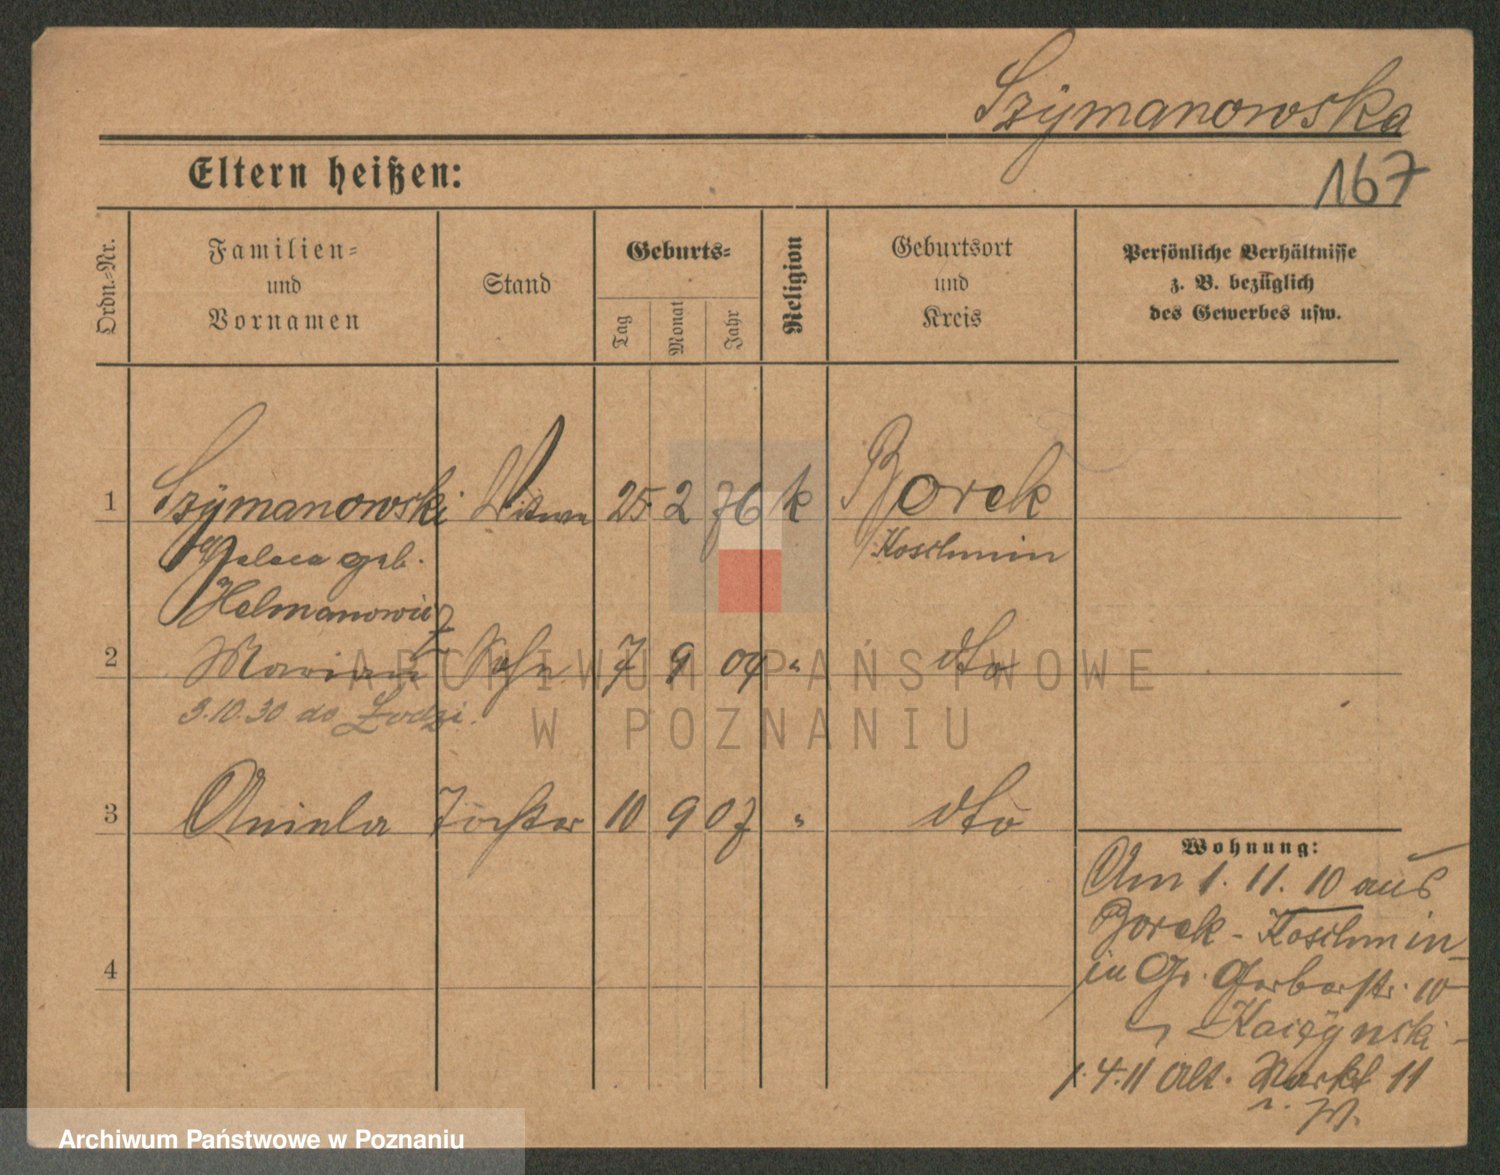 Szÿmanowska
Eltern heißen:
167
Ordn.-Nr.
Familien-
und
Vornamen
Stand
Geburts-
Tag
Monat
Jahr
Religion
Geburtsort
und
Kreis
Persönliche Verhältnisse
z. B. bezüglich
des Gewerbes usw.
1 Szÿmanowski Witwe 25 2 76 k Borek
geb. Koschmin
Helmanowicz
2 Marian Sohn 7 9 04 " dto
3.10.30 do Łodzi.
3 Aniela Tochter 10 9 07 " dto
4
Wohnung:
Am 1. 11. 10 aus
Borek - Koschmin
in Gr. Gerberstr. 10
1.4.11 Alt. Markt 11
ARCHIWUM PAŃSTWOWE
W POZNANIU
Archiwum Państwowe w Poznaniu